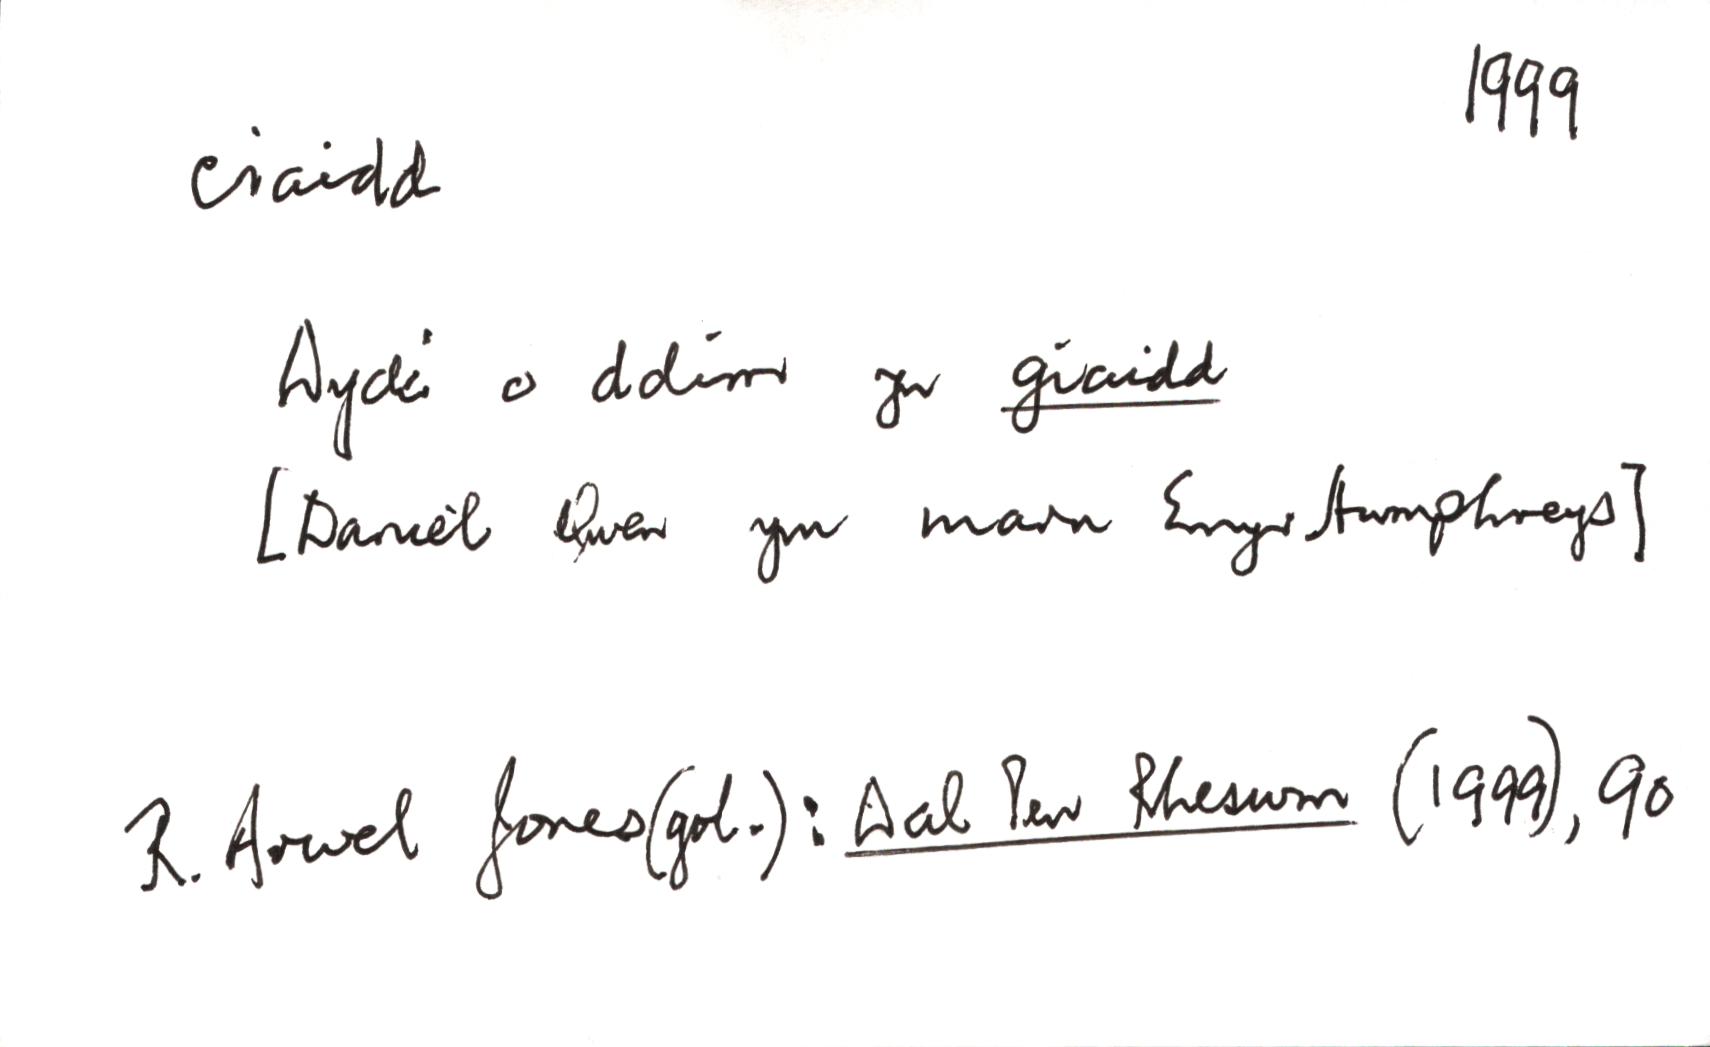 1999
ciaidd
Dydi o ddim yn giaidd
[Daniel Owen ym marn Emyr Humphreys]
R. Arwel Jones (gol.): Dal Pen Rheswm (1999), 90